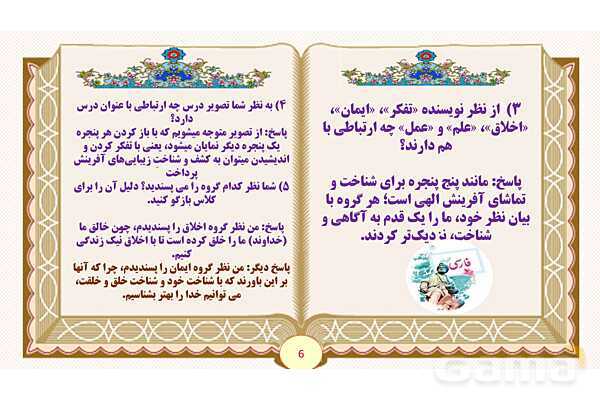 ۳) از نظر نویسنده «تفکر»، «ایمان»،
«اخلاق»، «علم» و «عمل» چه ارتباطی با
هم دارند؟
پاسخ: مانند پنج پنجره برای شناخت و
تماشای آفرینش الهی است؛ هر گروه با
بیان نظر خود، ما را یک قدم به آگاهی و
شناخت، نزدیک‌تر کردند.
فارسی
۴) به نظر شما تصویر درس چه ارتباطی با عنوان درس
دارد؟
پاسخ: از تصویر متوجه میشویم که با باز کردن هر پنجره
یک پنجره دیگر نمایان میشود، یعنی با تفکر کردن و
اندیشیدن میتوان به کشف و شناخت زیبایی‌های آفرینش
پرداخت
۵) شما نظر کدام گروه را می پسندید؟ دلیل آن را برای
کلاس بازگو کنید.
پاسخ: من نظر گروه اخلاق را پسندیدم، چون خالق ما
(خداوند) ما را خلق کرده است تا با اخلاق نیک زندگی
کنیم.
پاسخ دیگر: من نظر گروه ایمان را پسندیدم، چرا که آنها
بر این باورند که با شناخت خود و شناخت خلق و خلقت،
می توانیم خدا را بهتر بشناسیم.
6
Gama